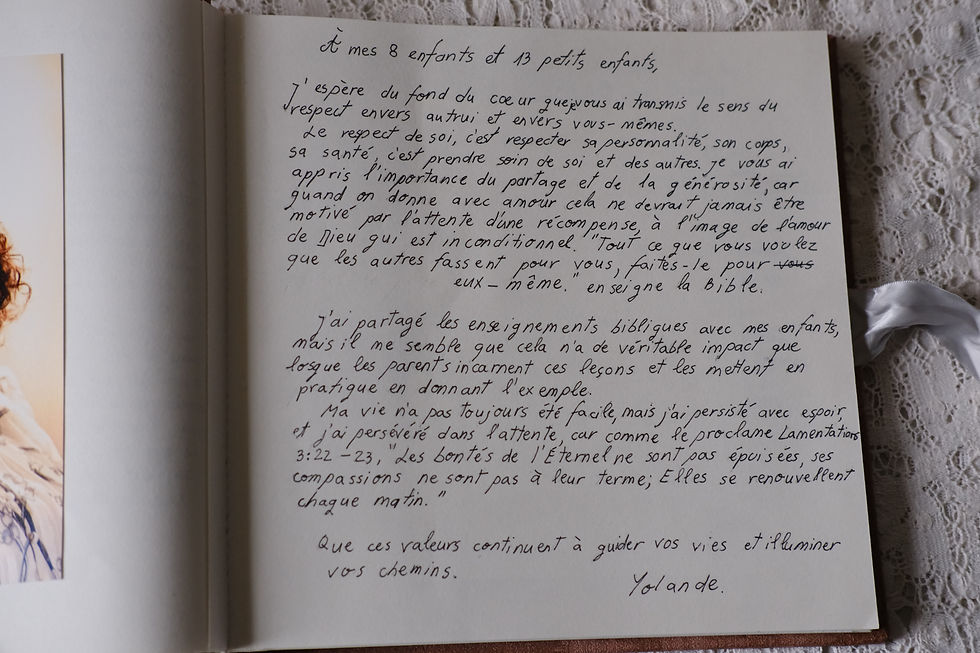 À mes 8 enfants et 13 petits enfants,
J'espère du fond du cœur que je vous ai transmis le sens du
respect envers autrui et envers vous-mêmes.
Le respect de soi, c'est respecter sa personnalité, son corps,
sa santé, c'est prendre soin de soi et des autres. Je vous ai
appris l'importance du partage et de la générosité, car
quand on donne avec amour cela ne devrait jamais être
motivé par l'attente d'une récompense, à l'image de l'amour
de Dieu qui est inconditionnel. "Tout ce que vous voulez
que les autres fassent pour vous, faites-le pour vous
eux-même." enseigne la Bible.
J'ai partagé les enseignements bibliques avec mes enfants,
mais il me semble que cela n'a de véritable impact que
losque les parents incarnent ces leçons et les mettent en
pratique en donnant l'exemple.
Ma vie n'a pas toujours été facile, mais j'ai persisté avec espoir,
et j'ai persévéré dans l'attente, car comme le proclame Lamentations
3:22-23, "Les bontés de l'Éternel ne sont pas épuisées, ses
compassions ne sont pas à leur terme; Elles se renouvellent
chaque matin."
Que ces valeurs continuent à guider vos vies et illuminer
vos chemins.
Yolande.